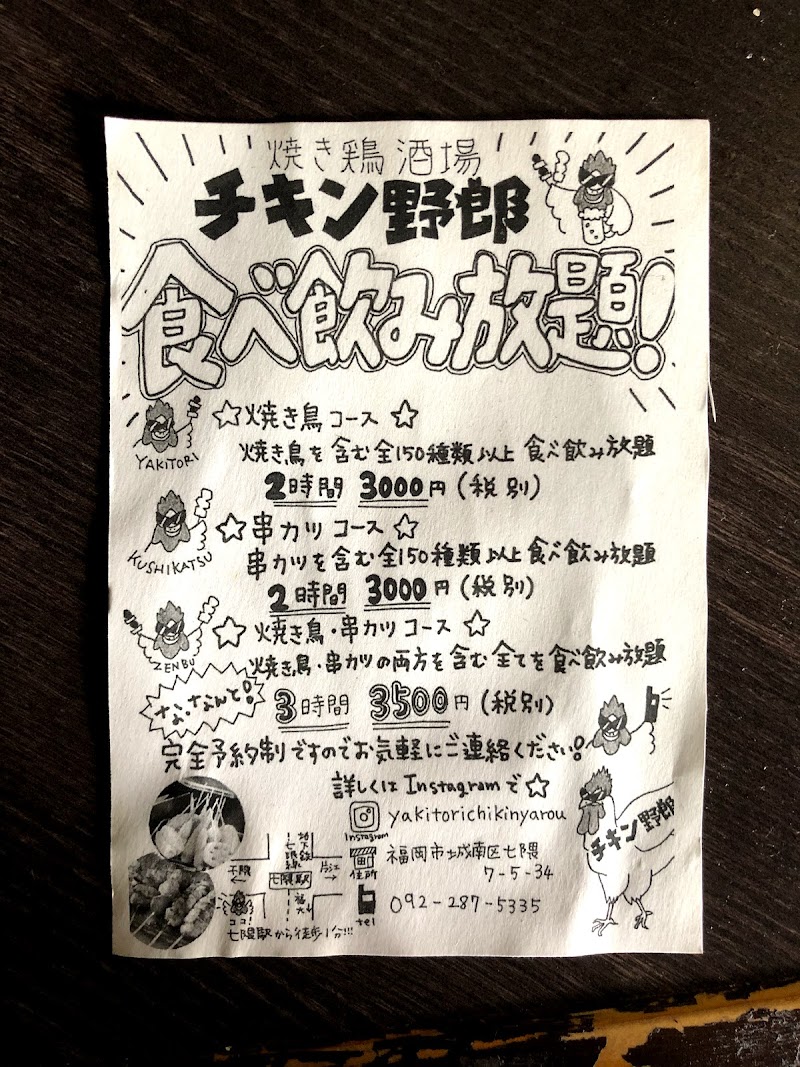 焼き鶏酒場
チキン野郎
食べ飲み放題!
YAKITORI
☆焼き鳥コース☆
焼き鳥を含む全150種類以上食べ飲み放題
2時間 3000円(税別)
KUSHIKATSU
☆串カツコース☆
串カツを含む全150種類以上食べ飲み放題
2時間 3000円(税別)
ZENBU
☆焼き鳥・串カツコース☆
焼き鳥・串カツの両方を含む全てを食べ飲み放題
な、なんと!!
3時間 3500円(税別)
完全予約制ですのでお気軽にご連絡ください!!
詳しくはInstagramで☆
Instagram
yakitorichikinyarou
チキン野郎
住所
福岡市城南区七隈
7-5-34
tel
092-287-5335
地下鉄
七隈線
干隈
←
七隈駅
片江
→
福大
↓
ココ!
七隈駅から徒歩1分!!!